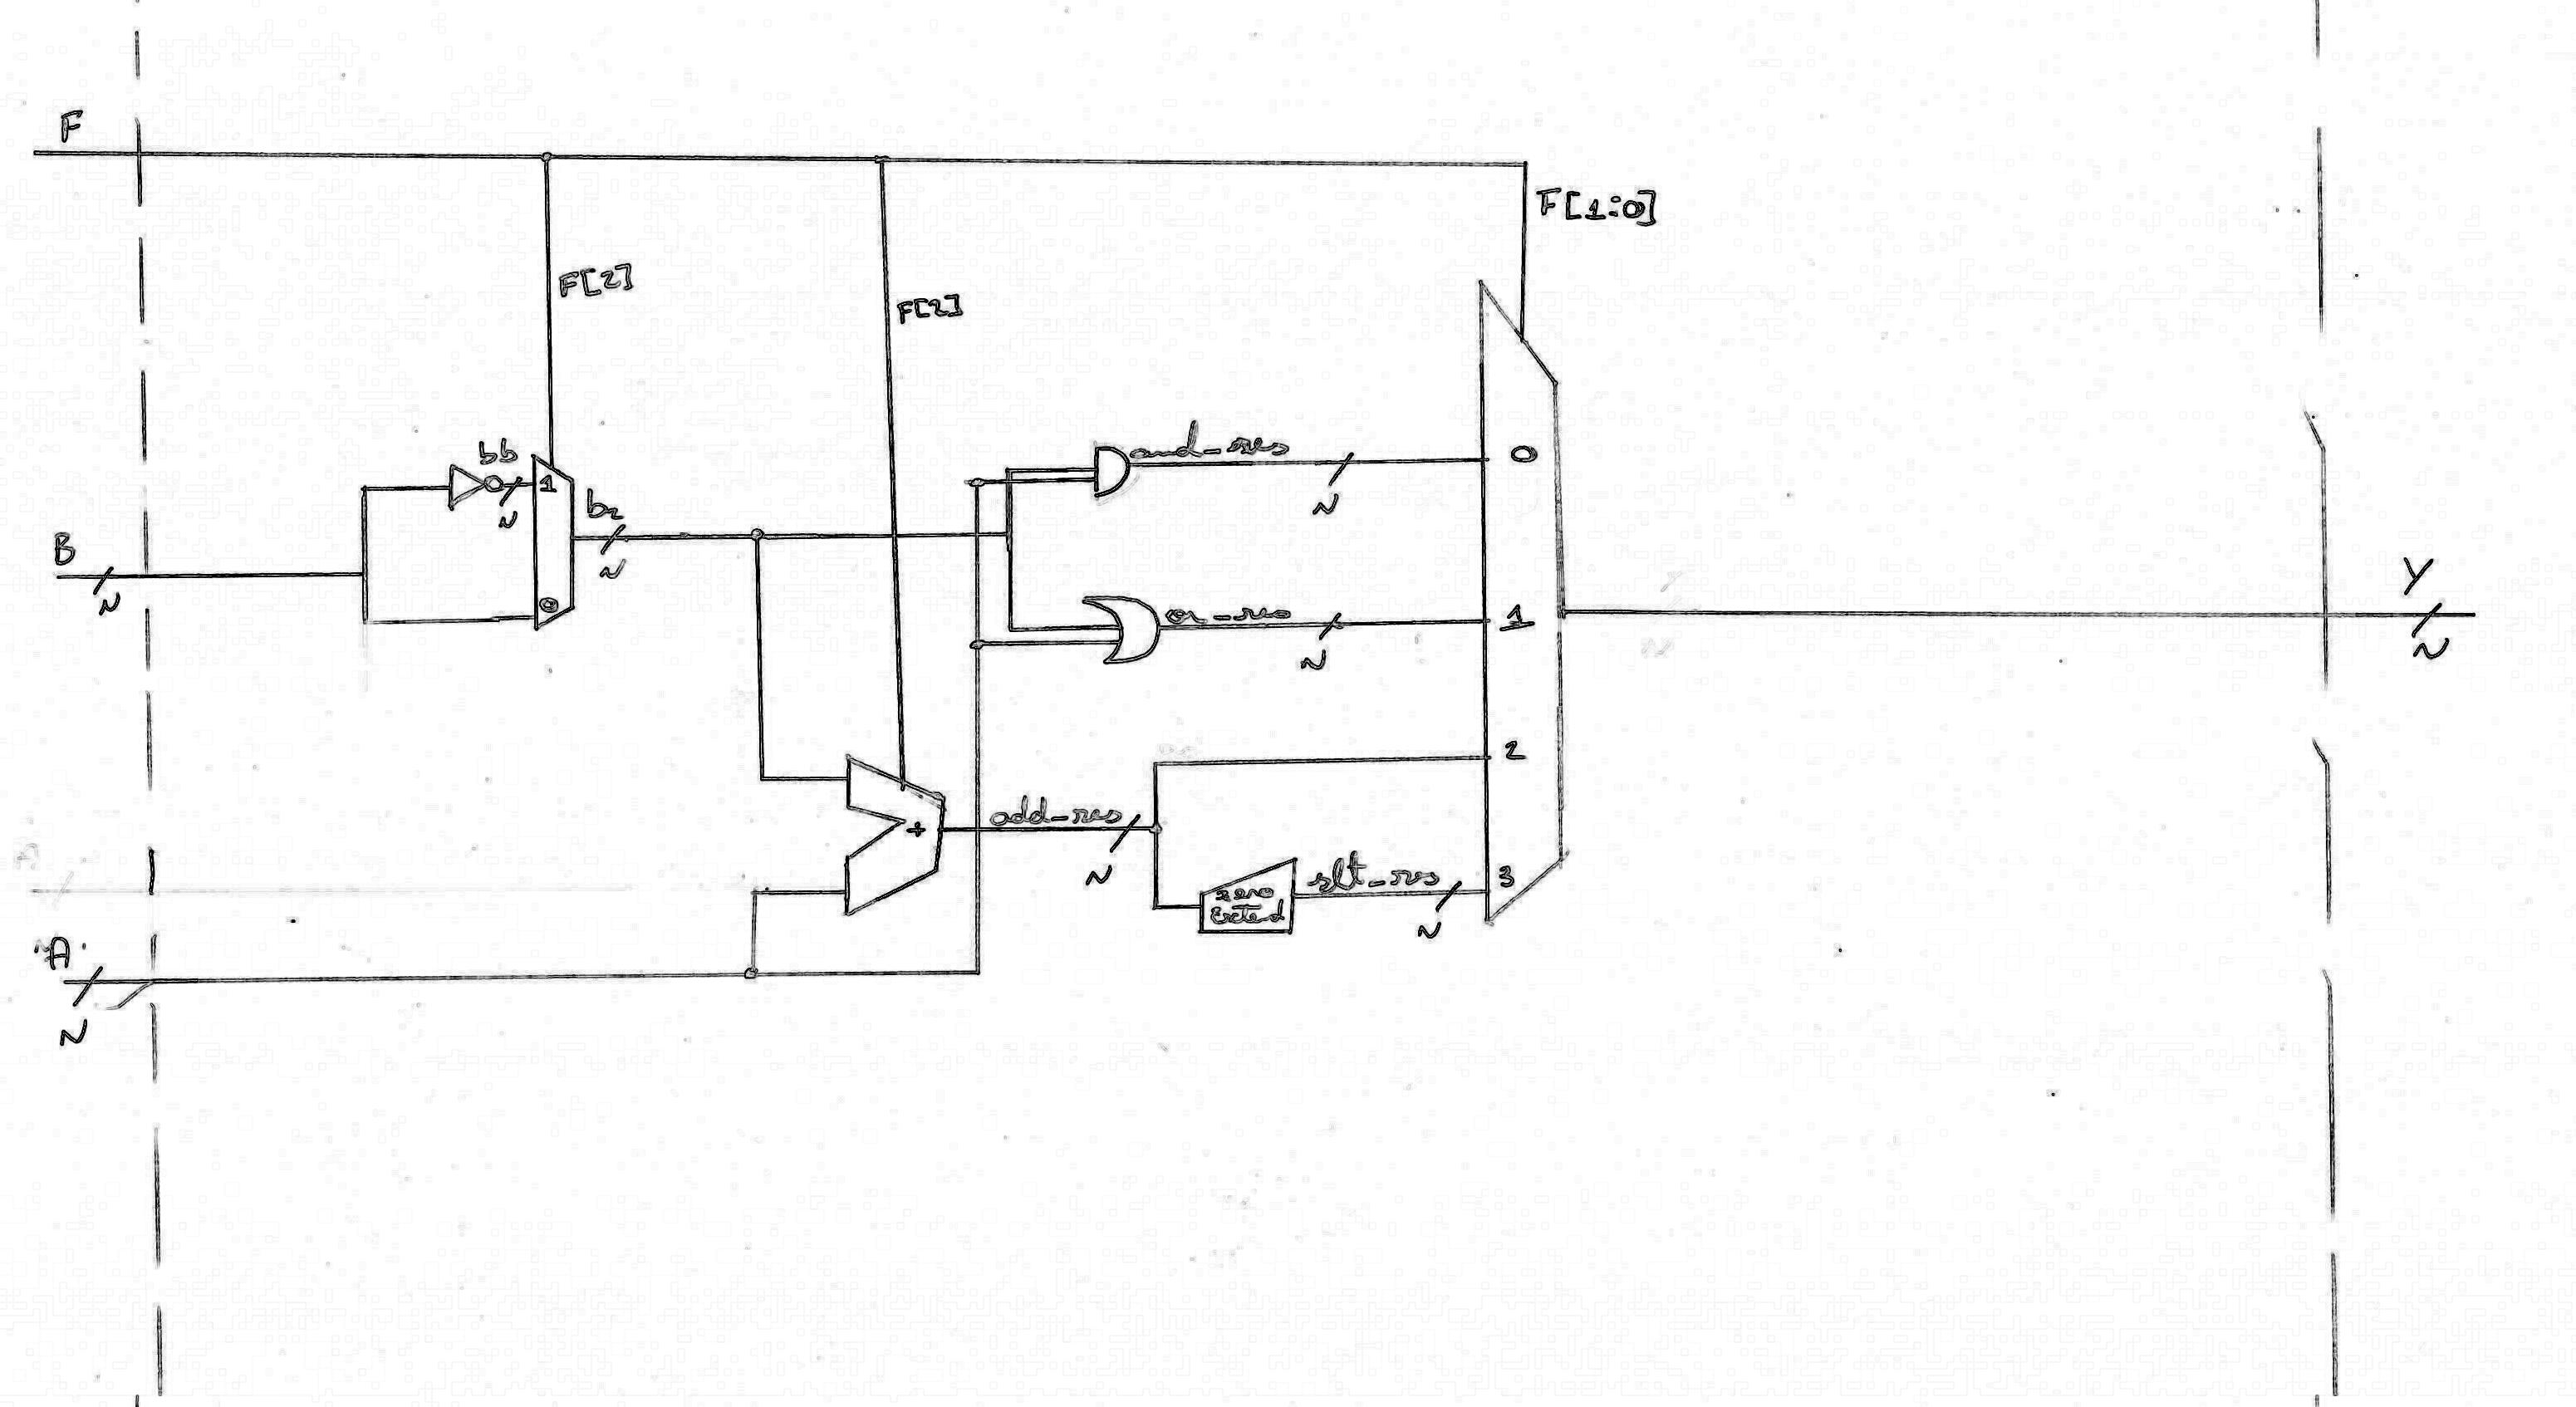 F
F[1:0]
F[2]
F[2]
bb
1
N
b2
N
B
N
0
and_res
N
0
or_res
N
1
Y
N
2
add_res
N
+
zero
Extend
slt_res
N
3
A
N